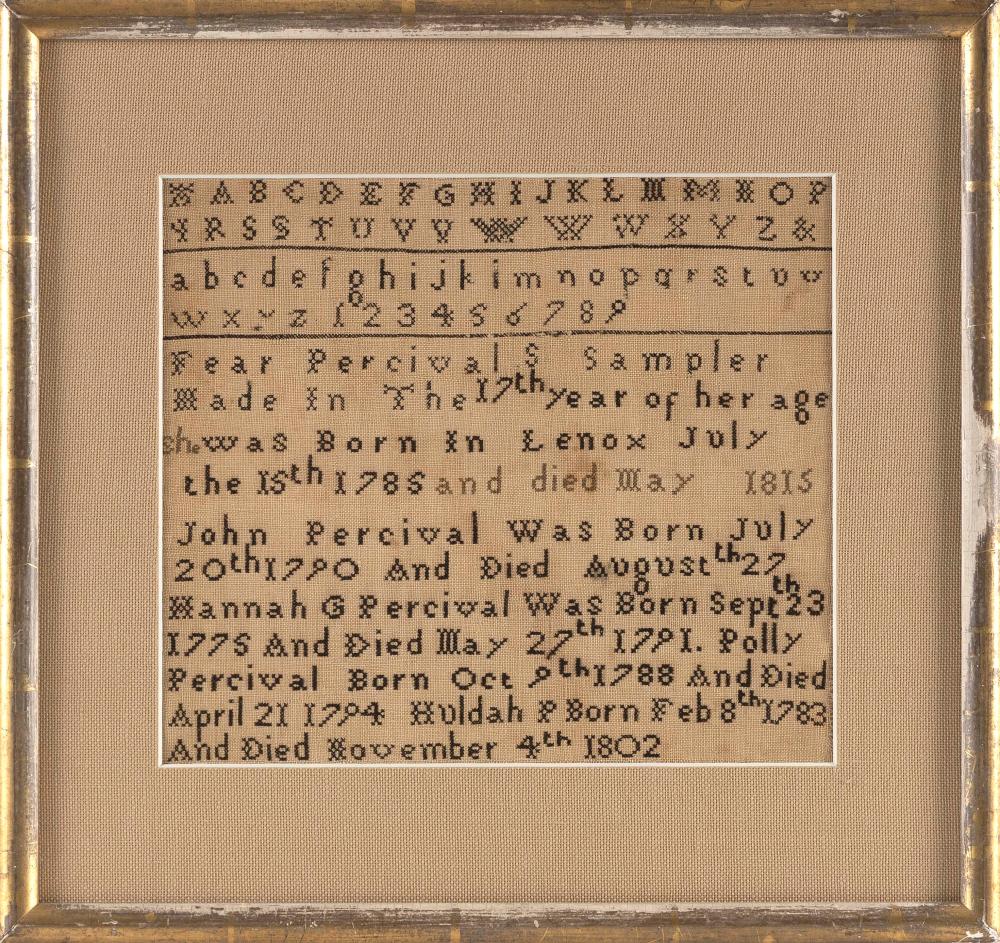 A A B C D E F G H I J K L M M N O P
Q R S S T U V V W W W X Y Z &
a b c d e f g h i j k i m n o p q r s t u v
w x y z 1 2 3 4 5 6 7 8 9
Fear Percival S Sampler
Made In The 17th year of her age
she was Born In Lenox July
the 15th 1785 and died May 1815
John Percival Was Born July
20th 1790 And Died August th 27
Hannah G Percival Was Born Sept 23th
1775 And Died May 27th 1791. Polly
Percival Born Oct 9th 1788 And Died
April 21 1794 Huldah P Born Feb 8th 1783
And Died November 4th 1802